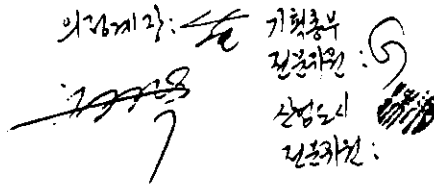 의정계장:
기획총무
전문위원:
산업도시
전문위원: